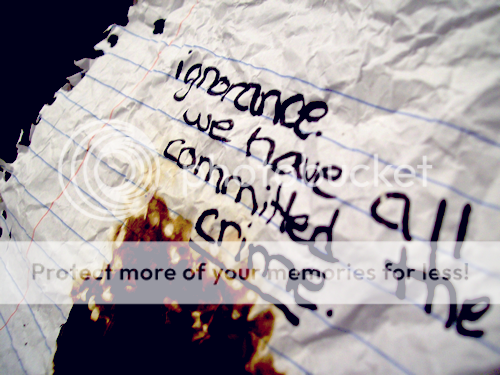 ignorance.
we have all
committed the
crime.
photobucket
Protect more of your memories for less!